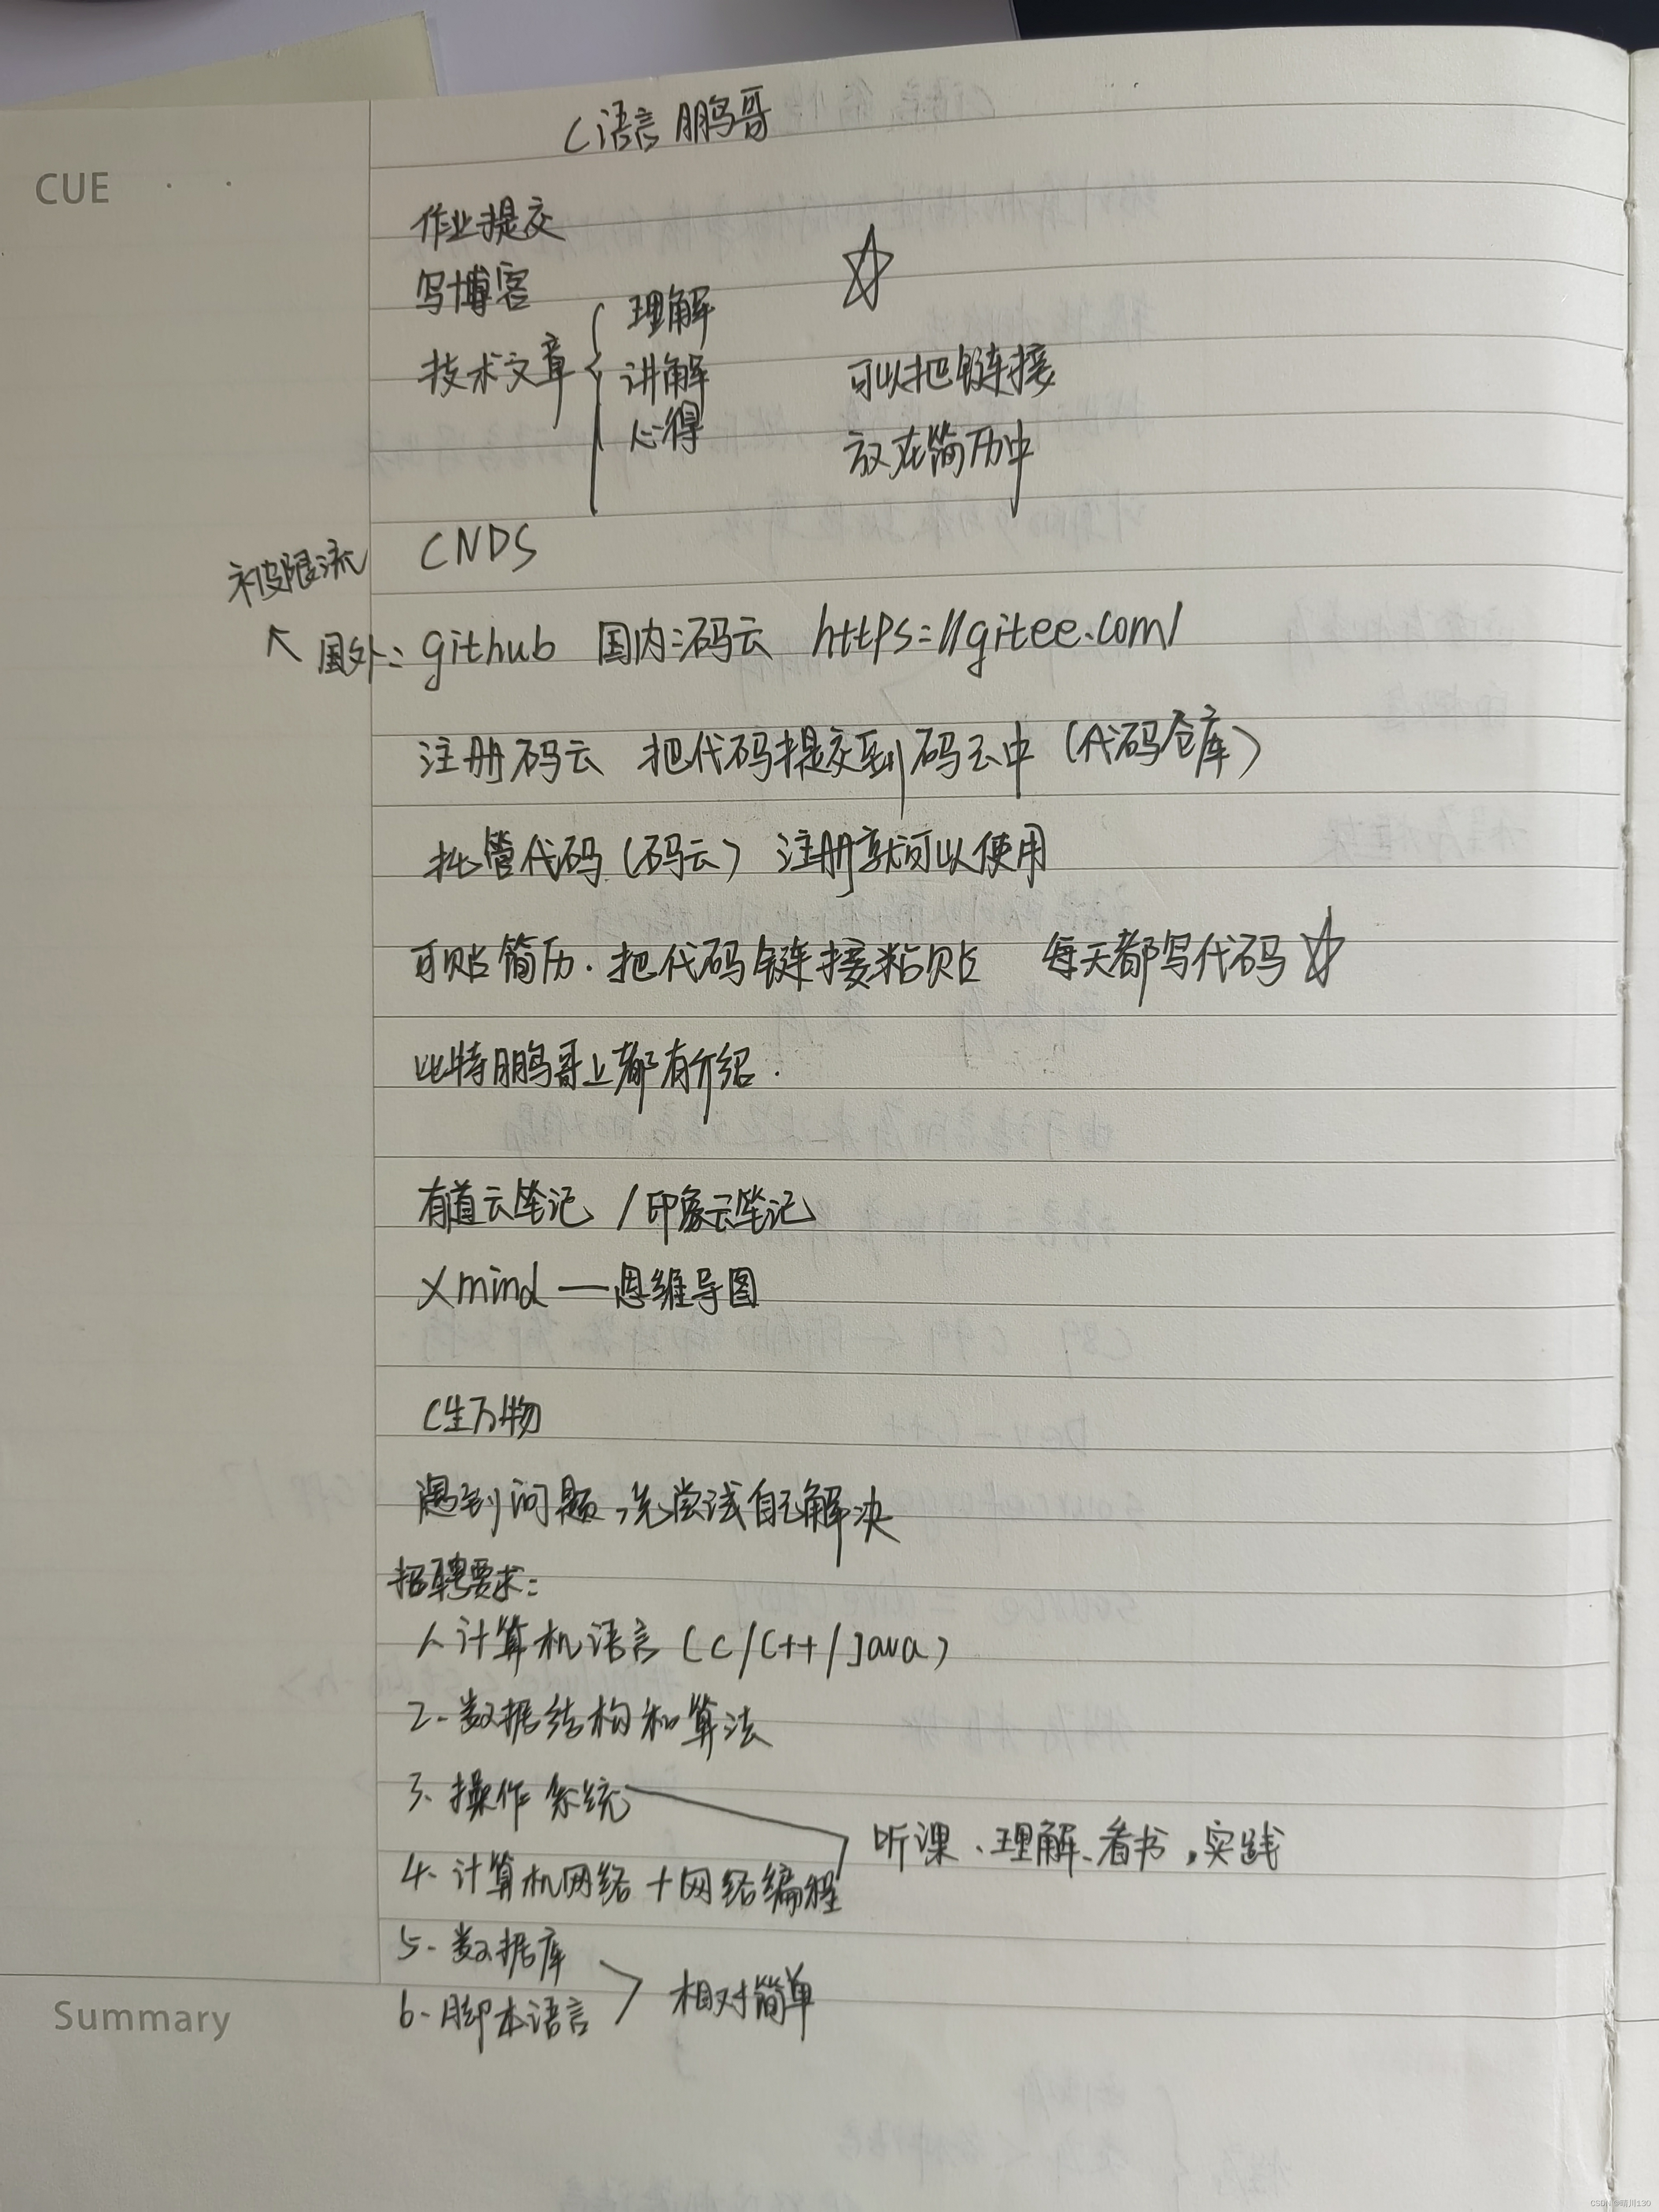 C语言 鹏哥
CUE
作业提交
写博客
理解
技术文章
讲解
心得
☆
可以把链接
放在简历中
CNDS
被限流
国外: github 国内:码云 https://gitee.com/
注册码云 把代码提交到码云中 (代码仓库)
托管代码(码云) 注册就可以使用
可贴简历.把代码链接粘贴 每天都写代码 ☆
比特鹏哥上都有介绍.
有道云笔记 / 印象云笔记
Xmind — 思维导图
C生万物
遇到问题,先尝试自己解决
招聘要求:
1、计算机语言 (C/C++/Java)
2. 数据结构和算法
3、操作系统
4. 计算机网络 + 网络编程
听课、理解、看书,实践
5. 数据库
6. 脚本语言
相对简单
Summary
CSDN @晴川130